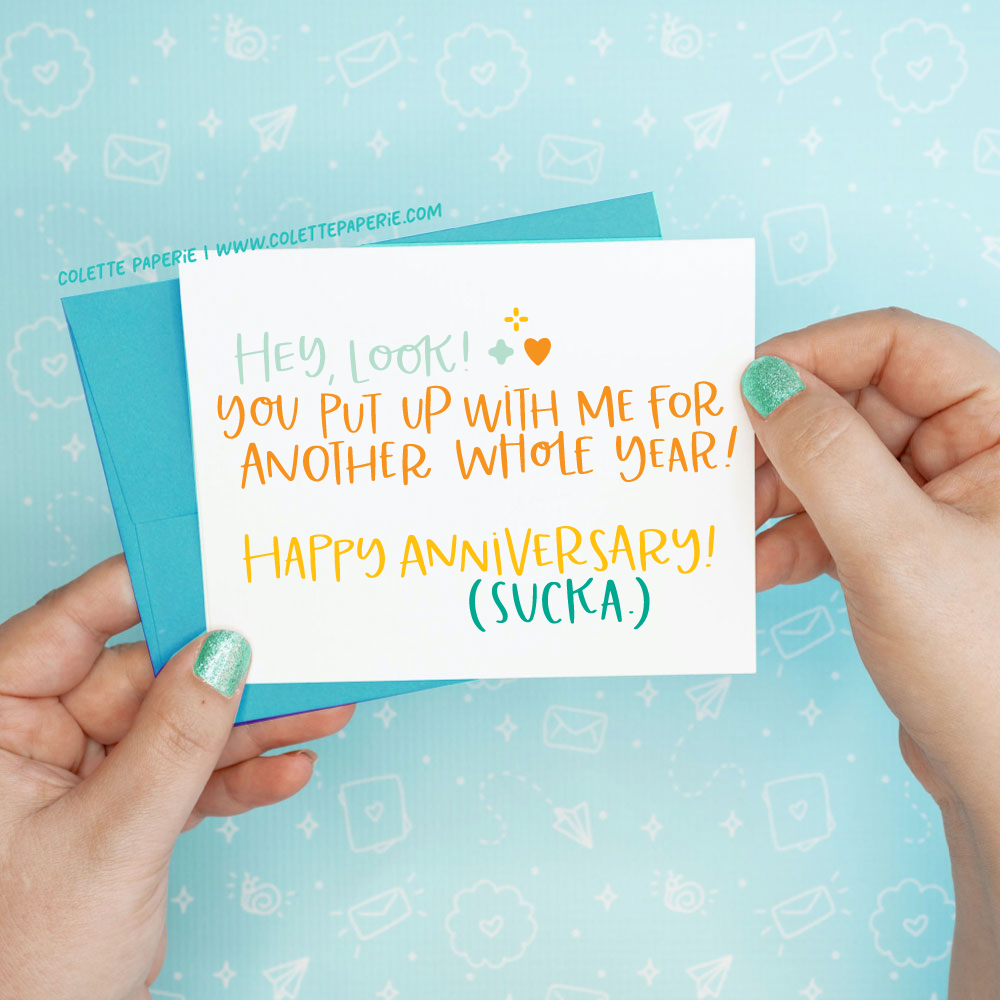 COLETTE PAPERiE | WWW.COLETTEPAPERiE.COM
HEY, LOOK!
YOU PUT UP WiTH ME FOR
ANOTHER WHOLE YEAR!
HAPPY ANNiVERSARY!
(SUCKA.)